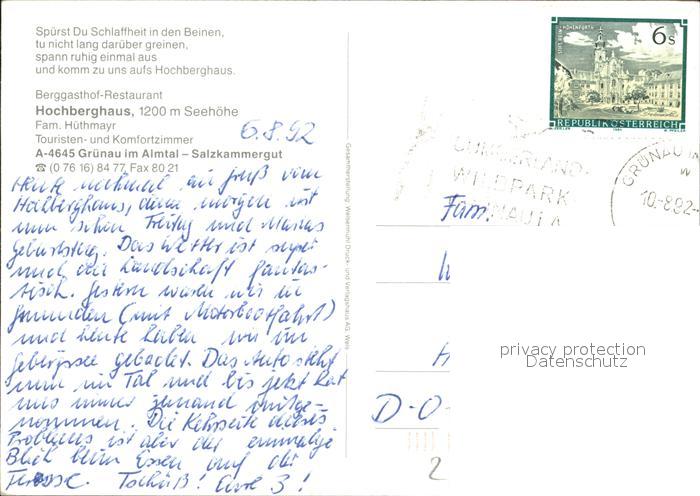 Spürst Du Schlaffheit in den Beinen,
tu nicht lang darüber greinen,
spann ruhig einmal aus
und komm zu uns aufs Hochberghaus.
Berggasthof-Restaurant
Hochberghaus, 1200 m Seehöhe
Fam. Hüthmayr
Touristen- und Komfortzimmer
A-4645 Grünau im Almtal – Salzkammergut
☎ (0 76 16) 84 77, Fax 80 21
6.8.92
Heute nochmal ein Gruß vom
Hochberghaus, denn morgen ist
nun schon Freitag und
Geburtstag. Das Wetter ist super
und die Landschaft fantas-
tisch. Gestern waren wir in
Gmunden (mit Motorbootfahrt)
und heute haben wir im
Gebirgssee gebadet. Das Auto steht
nun im Tal und bis jetzt hat
uns immer jemand mitge-
nommen. Die Kehrseite dieses
Problems ist aber der einmalige
Blick beim Essen auf der
Terasse. Tschüß! Eure 3!
Gesamtherstellung: Welsermühl Druck- und Verlagshaus AG, Wels
STIFT REIN-HOHENFURTH
6 S
REPUBLIK ÖSTERREICH
ZEILER 1984
CUMBERLAND-
WILDPARK
GRÜNAU IM
10.-8.92-
Fam.
D-O-
2
privacy protection
Datenschutz